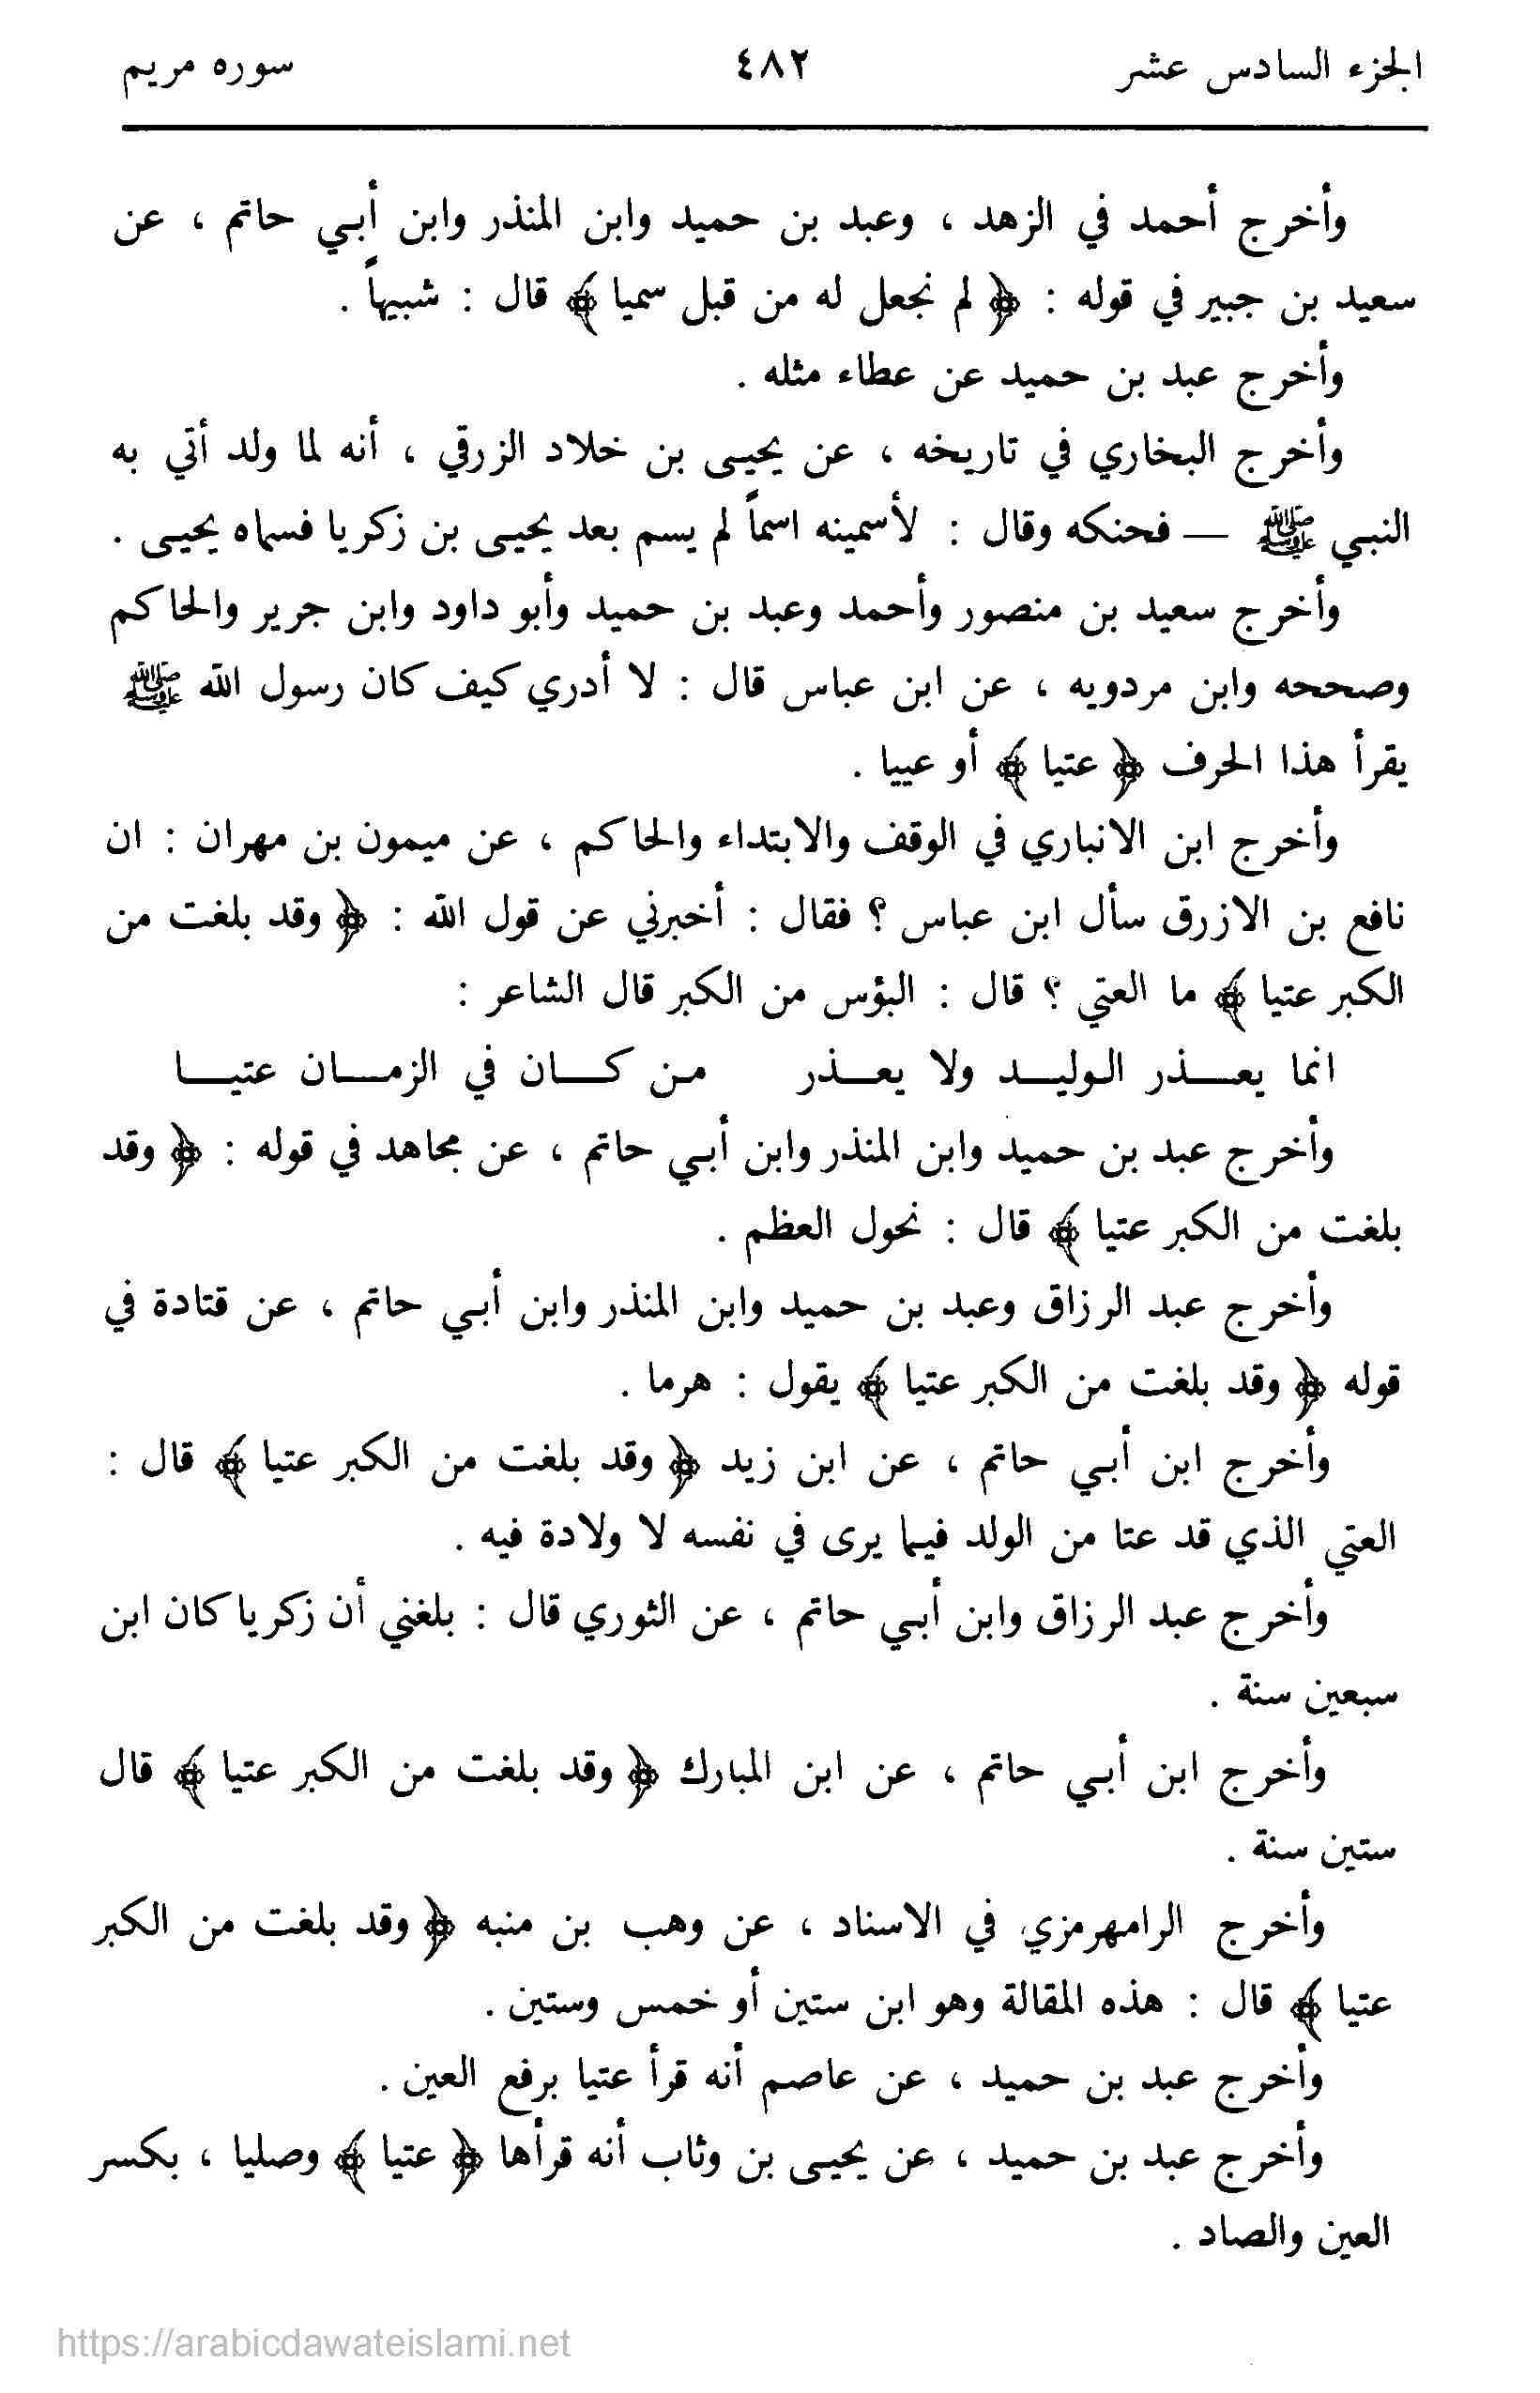 الجزء السادس عشر ٤٨٢ سوره مريم
وأخرج أحمد في الزهد ، وعبد بن حميد وابن المنذر وابن أبي حاتم ، عن
سعيد بن جبير في قوله : ﴿ لم نجعل له من قبل سميا ﴾ قال : شبيهاً .
وأخرج عبد بن حميد عن عطاء مثله .
وأخرج البخاري في تاريخه ، عن يحيى بن خلاد الزرقي ، أنه لما ولد أتي به
النبي ﷺ — فحنكه وقال : لأسمينه اسماً لم يسم بعد يحيى بن زكريا فسماه يحيى .
وأخرج سعيد بن منصور وأحمد وعبد بن حميد وأبو داود وابن جرير والحاكم
وصححه وابن مردويه ، عن ابن عباس قال : لا أدري كيف كان رسول الله ﷺ
يقرأ هذا الحرف ﴿ عتيا ﴾ أو عييا .
وأخرج ابن الانباري في الوقف والابتداء والحاكم ، عن ميمون بن مهران : ان
نافع بن الازرق سأل ابن عباس ؟ فقال : أخبرني عن قول الله : ﴿ وقد بلغت من
الكبر عتيا ﴾ ما العتي ؟ قال : البؤس من الكبر قال الشاعر :
انما يعـــذر الوليـــد ولا يعـــذر من كـــان في الزمـــان عتيـــا
وأخرج عبد بن حميد وابن المنذر وابن أبي حاتم ، عن مجاهد في قوله : ﴿ وقد
بلغت من الكبر عتيا ﴾ قال : نحول العظم .
وأخرج عبد الرزاق وعبد بن حميد وابن المنذر وابن أبي حاتم ، عن قتادة في
قوله ﴿ وقد بلغت من الكبر عتيا ﴾ يقول : هرما .
وأخرج ابن أبي حاتم ، عن ابن زيد ﴿ وقد بلغت من الكبر عتيا ﴾ قال :
العتي الذي قد عتا من الولد فيما يرى في نفسه لا ولادة فيه .
وأخرج عبد الرزاق وابن أبي حاتم ، عن الثوري قال : بلغني أن زكريا كان ابن
سبعين سنة .
وأخرج ابن أبي حاتم ، عن ابن المبارك ﴿ وقد بلغت من الكبر عتيا ﴾ قال
ستين سنة .
وأخرج الرامهرمزي في الاسناد ، عن وهب بن منبه ﴿ وقد بلغت من الكبر
عتيا ﴾ قال : هذه المقالة وهو ابن ستين أو خمس وستين .
وأخرج عبد بن حميد ، عن عاصم أنه قرأ عتيا برفع العين .
وأخرج عبد بن حميد ، عن يحيى بن وثاب أنه قرأها ﴿ عتيا ﴾ وصليا ، بكسر
العين والصاد .
https://arabicdawateislami.net